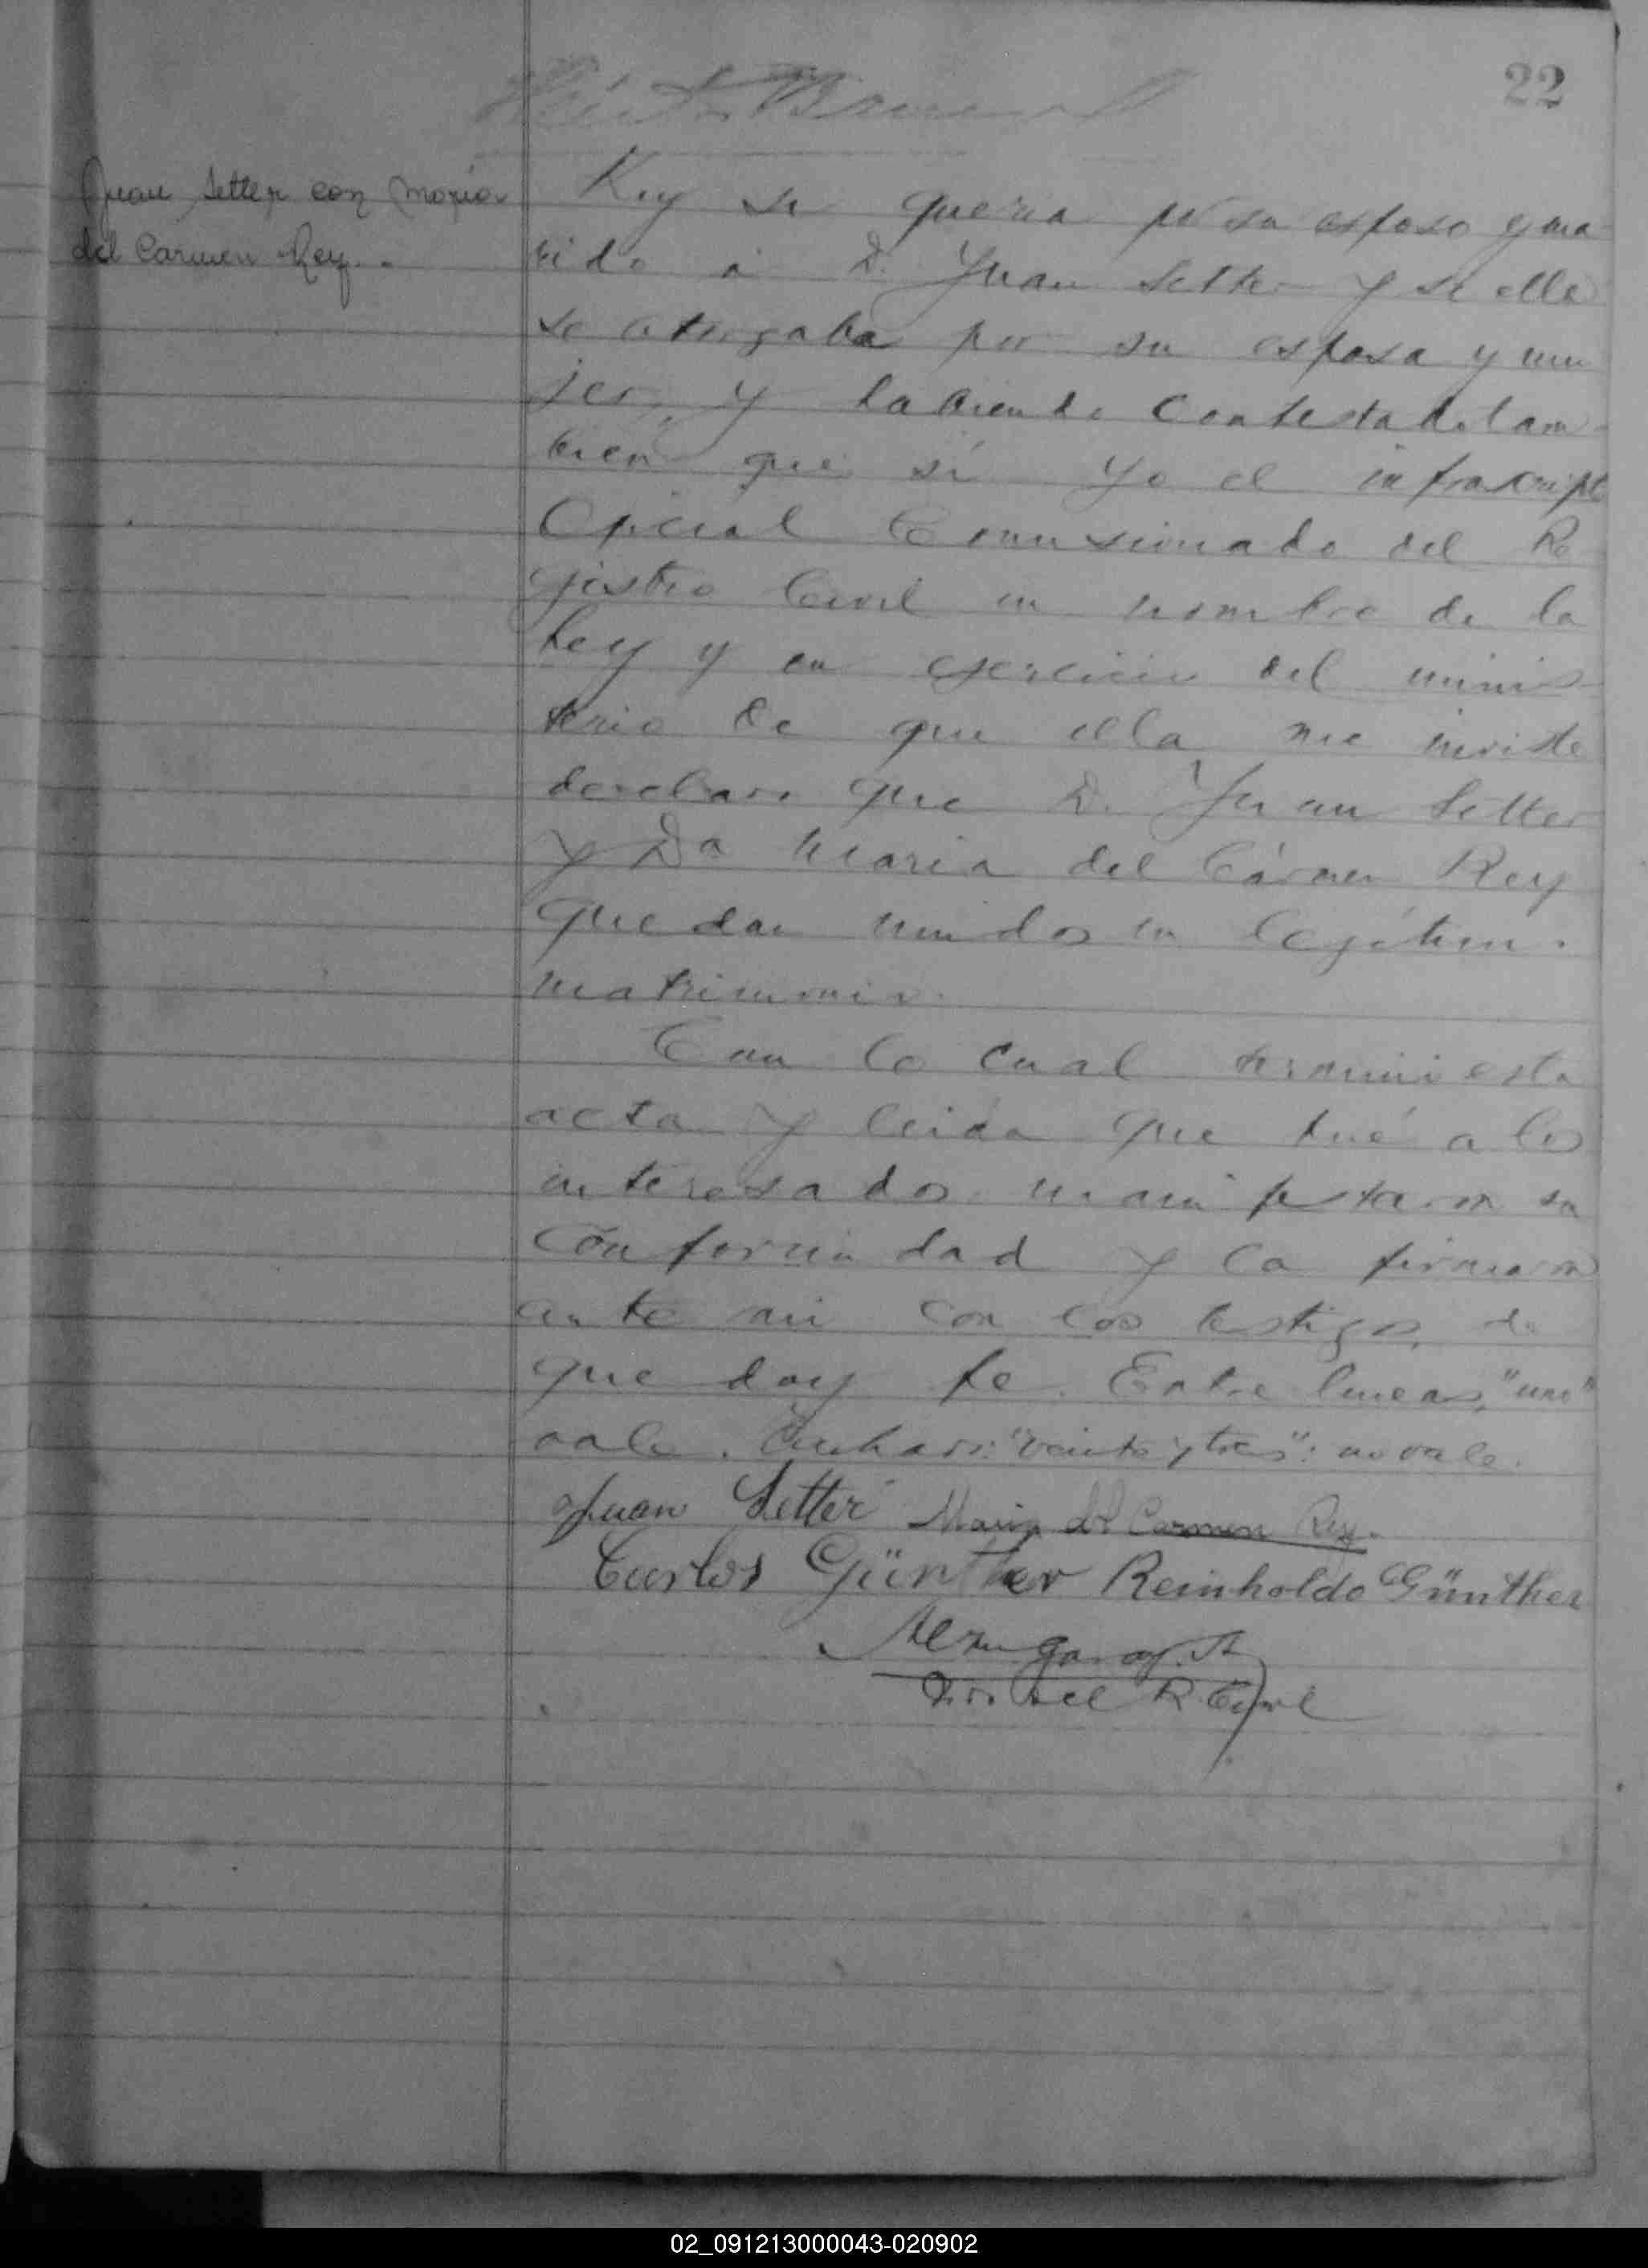 22
Juan Setter con Maria
del Carmen Rey.-
Rey si queria pr su esposo y ma-
rido a D. Juan Setter y si ella
se otorgaba por su esposa y mu
jer, y habiendo contestado tam-
bien que sí yo el infrascripto
Oficial Comisionado del Re
gistro Civil en nombre de la
Ley y en ejercicio del minis-
terio de que ella me inviste
declaro que D. Juan Setter
y Da Maria del Cármen Rey
quedan unidos en legítimo
matrimonio.
Con lo cual terminó esta
acta y leida que fué a los
interesados manifestaron su
conformidad y la firmaron
ante mi con los testigos, de
que doy fe. Entre lineas, "uno"
vale. "veinte y tres": no vale.
Juan Setter Maria del Carmen Rey.
Carlos Günther Reinholdo Günther
del R. Civil
02_091213000043-020902